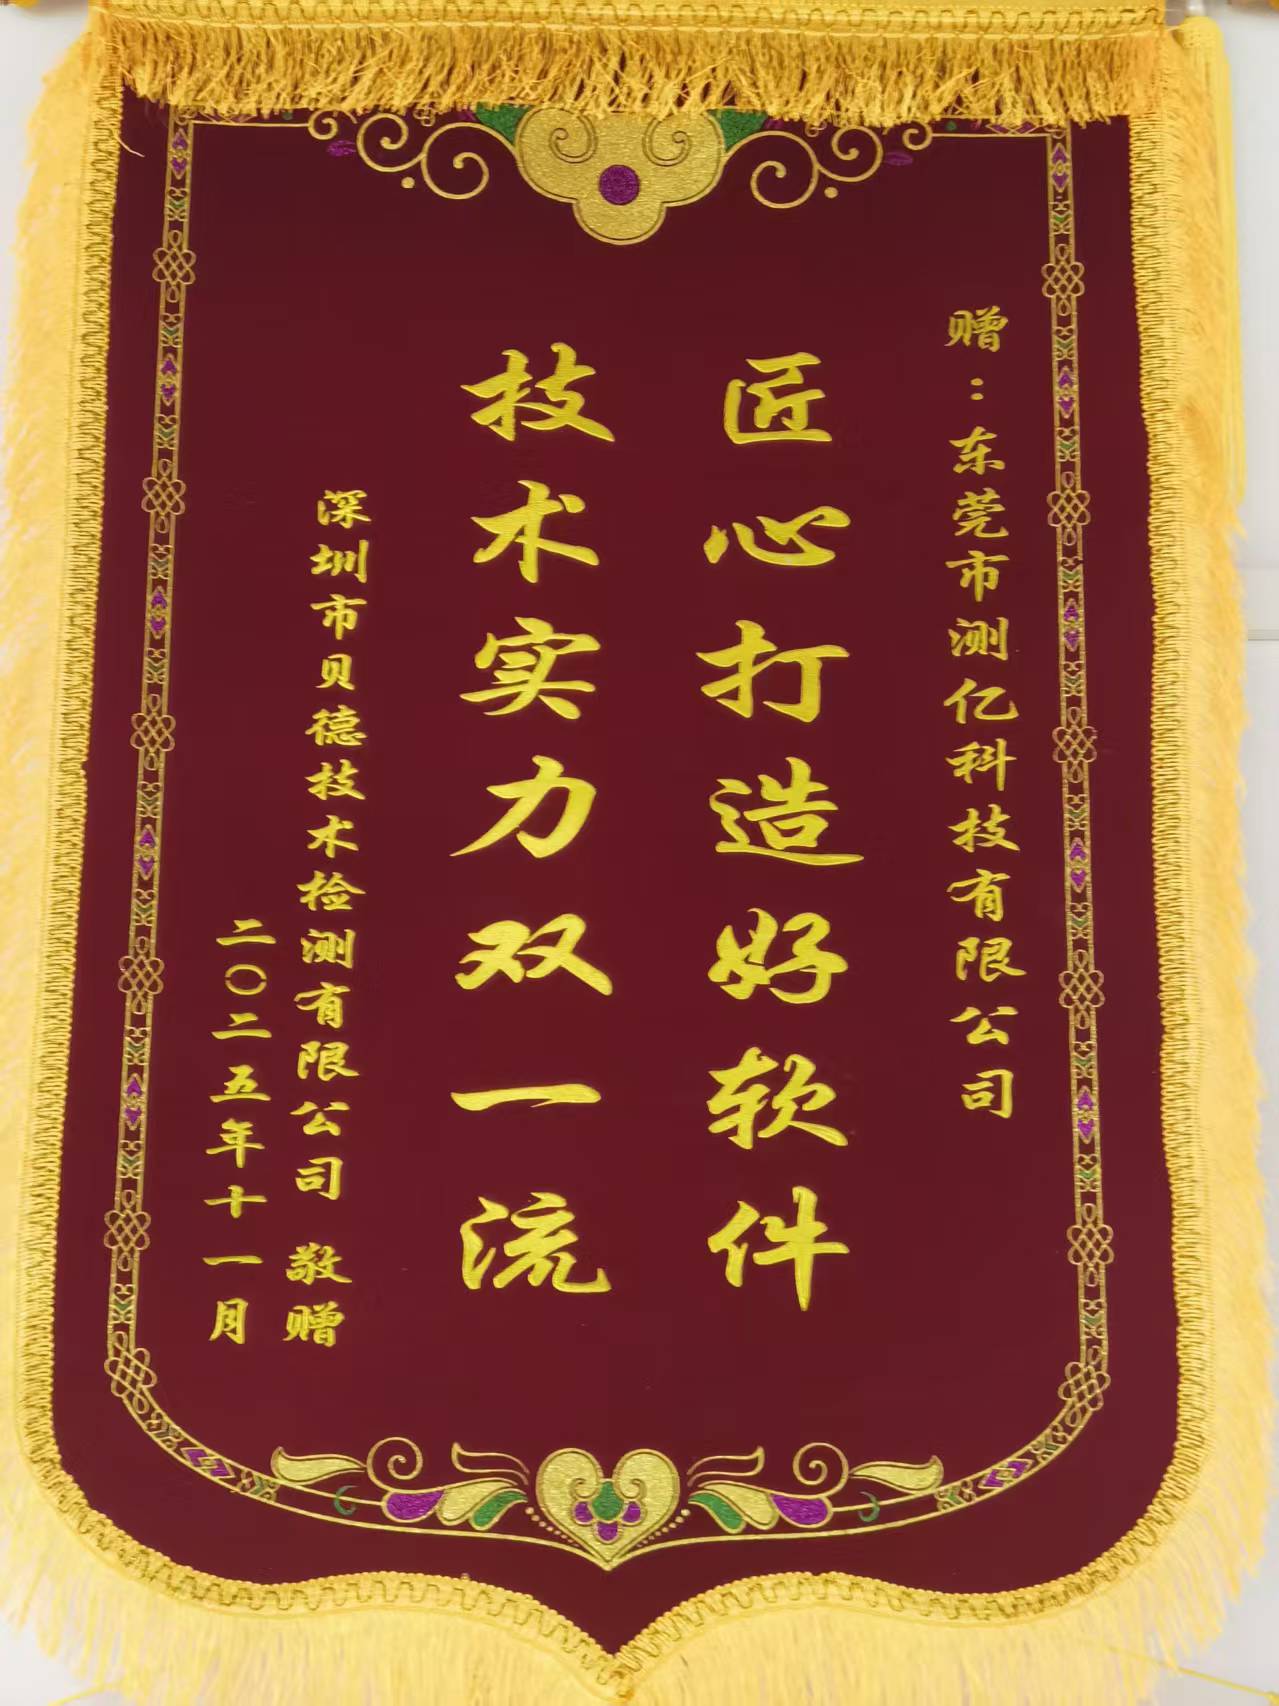 赠：东莞市测亿科技有限公司
匠心打造好软件
技术实力双一流
深圳市贝德技术检测有限公司 敬赠
二〇二五年十一月